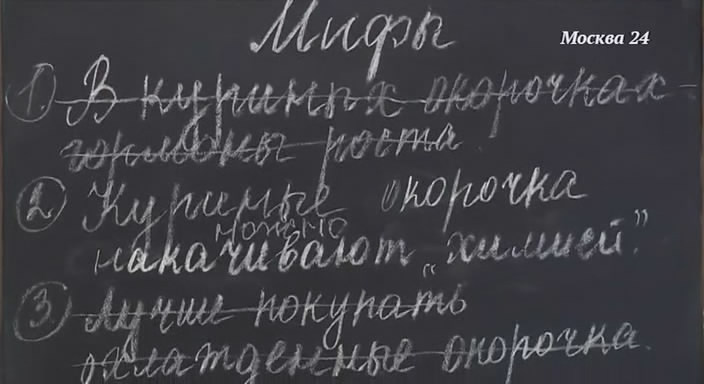 Мифы
Москва 24
1. В куриных окорочках -
гормоны роста.
2. Куриные окорочка
можно
накачивают "химией".
3. Лучше покупать
охлажденные окорочка.